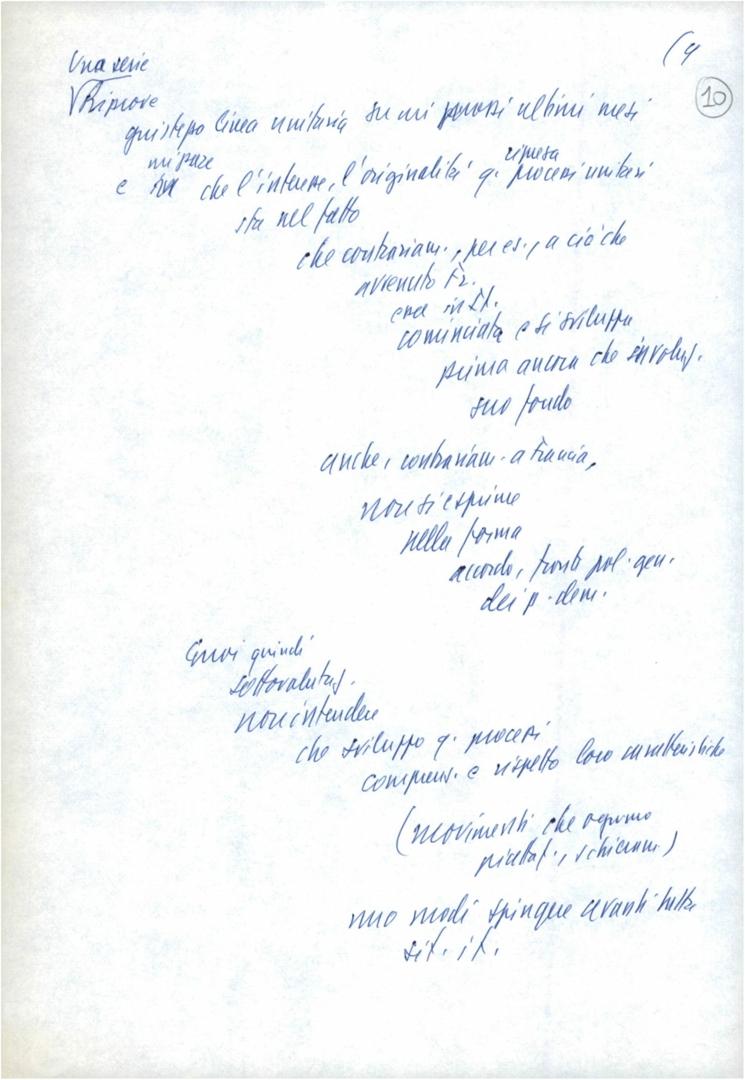 (4
10
Una serie
Riprove
linea unitaria su mi ultimi mesi
mi pare
ripresa
e che l'interesse, l'originalità q. processi unitari
sta nel fatto
che contrariam., per es., a ciò che
avvenuto Fr.
in It.
cominciata e si sviluppa
prima ancora che
suo fondo
anche, contrariam. a Francia,
non si esprime
nella forma
accordo, fronti pol. gen.
dei p. dem.
Guai quindi
sottovalutaz.
non intendere
che sviluppo q. processi
comprens. e rispetto loro caratteristiche
(movimenti che ognuno
piattaf., schieram.)
modi spingue avanti tutta
sit. it.